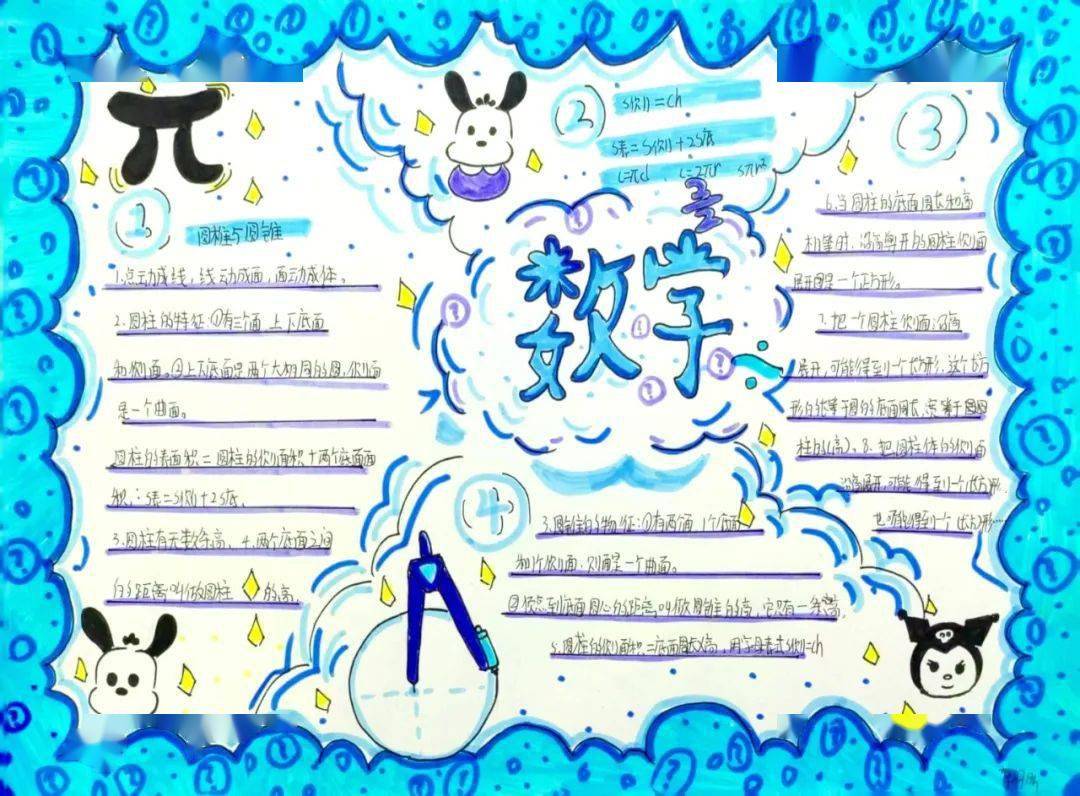 π
1
圆柱与圆锥
1.点动成线,线动成面,面动成体。
2.圆柱的特征:①有三个面 上下底面
和侧面。②上下底面是两个大小相同的圆,侧面
是一个曲面。
圆柱的表面积=圆柱的侧面积+两个底面面
积,:S表=S侧+2S底.
3.圆柱有无数条高、4.两个底面之间
的距离叫做圆柱的高.
2
S侧=ch
S表=S侧+2S底
C=πd、C=2πr Sπr²
数学
3
6.当圆柱的底面周长和高
相等时,沿高剪开的圆柱侧面
展开图是一个正方形。
7.把一个圆柱侧面沿高
展开,可能得到一个长方形,这个长方
形的长等于圆的底面周长,宽等于圆
柱的(高)、8.把圆柱体的侧面
沿高展开,可能得到一个(长方)形,
也可能得到一个(正方)形…
4
3.圆锥的特征:①有两个面 1个底面
和1个侧面,侧面是一个曲面。
②顶点到底面圆心的距离叫做圆锥的高,它只有一条高.
5.圆柱的侧面积=底面周长×高,用字母表示S侧=ch